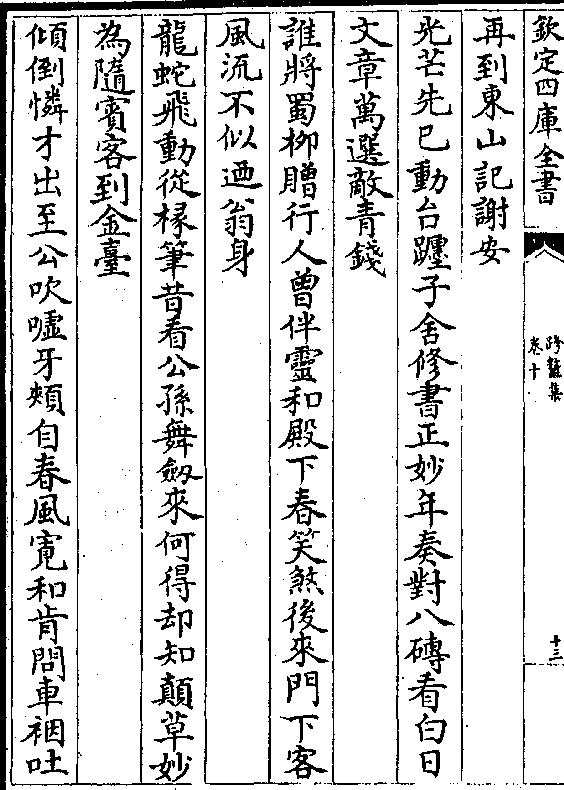 欽定四庫全書
跨鼇集
卷十
十三
再到東山記謝安
光芒先已動台躔子舍修書正妙年奏對八磚看白日
文章萬選敵青錢
誰將蜀柳贈行人曾伴靈和殿下春笑煞後來門下客
風流不似迺翁身
龍蛇飛動從椽筆昔看公孫舞劔來何得却知顛草妙
為隨賓客到金臺
傾倒憐才出至公吹噓牙頰自春風寛和肯問車裀吐